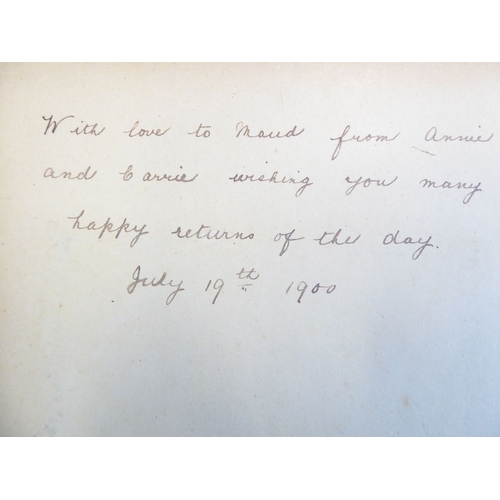 With love to Maud from Annie
and Carrie wishing you many
happy returns of the day.
July 19th 1900